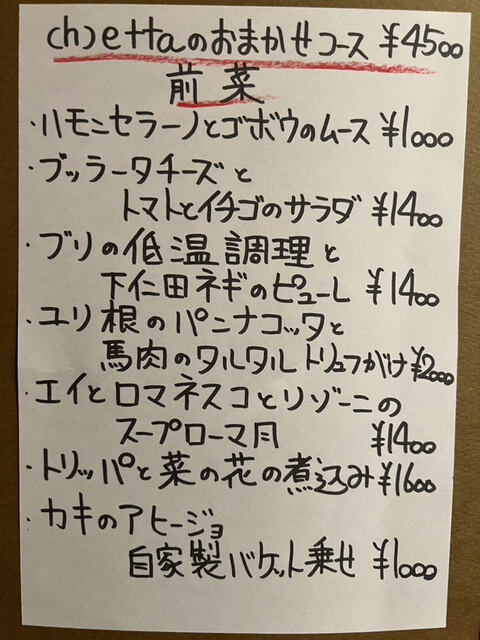 chiettaのおまかせコース ¥4500
前菜
・ハモンセラーノとゴボウのムース ¥1000
・ブッラータチーズと
トマトとイチゴのサラダ ¥1400
・ブリの低温調理と
下仁田ネギのピューレ ¥1400
・ユリ根のパンナコッタと
馬肉のタルタル トリュフがけ ¥2000
・エイとロマネスコとリゾーニの
スープローマ風 ¥1400
・トリッパと菜の花の煮込み ¥1600
・カキのアヒージョ
自家製バケット乗せ ¥1000